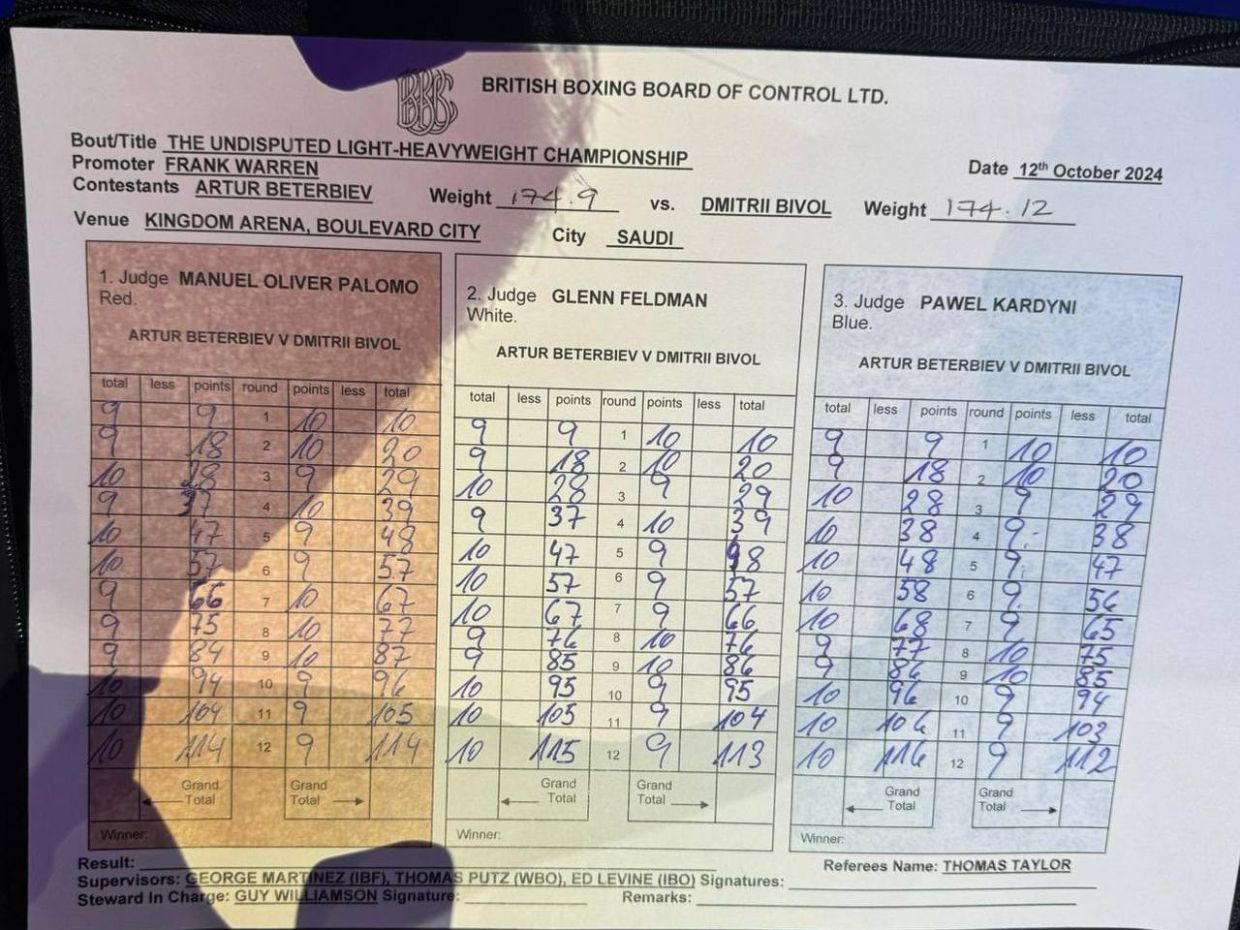 BBBC
BRITISH BOXING BOARD OF CONTROL LTD.
Bout/Title THE UNDISPUTED LIGHT-HEAVYWEIGHT CHAMPIONSHIP
Promoter FRANK WARREN Date 12th October 2024
Contestants ARTUR BETERBIEV Weight 174.9 vs. DMITRII BIVOL Weight 174.12
Venue KINGDOM ARENA, BOULEVARD CITY City SAUDI
1. Judge MANUEL OLIVER PALOMO
Red.
ARTUR BETERBIEV V DMITRII BIVOL
total less points round points less total
9 9 1 10 10
9 18 2 10 20
10 28 3 9 29
9 37 4 10 39
10 47 5 9 48
10 57 6 9 57
9 66 7 10 67
9 75 8 10 77
9 84 9 10 87
10 94 10 9 96
10 104 11 9 105
10 114 12 9 114
Grand Total Grand Total
Winner:
2. Judge GLENN FELDMAN
White.
ARTUR BETERBIEV V DMITRII BIVOL
total less points round points less total
9 9 1 10 10
9 18 2 10 20
10 28 3 9 29
9 37 4 10 39
10 47 5 9 48
10 57 6 9 57
10 67 7 9 66
9 76 8 10 76
9 85 9 10 86
10 95 10 9 95
10 105 11 9 104
10 115 12 9 113
Grand Total Grand Total
Winner:
3. Judge PAWEL KARDYNI
Blue.
ARTUR BETERBIEV V DMITRII BIVOL
total less points round points less total
9 9 1 10 10
9 18 2 10 20
10 28 3 9 29
10 38 4 9 38
10 48 5 9 47
10 58 6 9 56
10 68 7 9 65
9 77 8 10 75
9 86 9 10 85
10 96 10 9 94
10 106 11 9 103
10 116 12 9 112
Grand Total Grand Total
Winner:
Result: Referees Name: THOMAS TAYLOR
Supervisors: GEORGE MARTINEZ (IBF), THOMAS PUTZ (WBO), ED LEVINE (IBO) Signatures:
Steward In Charge: GUY WILLIAMSON Signature: Remarks: